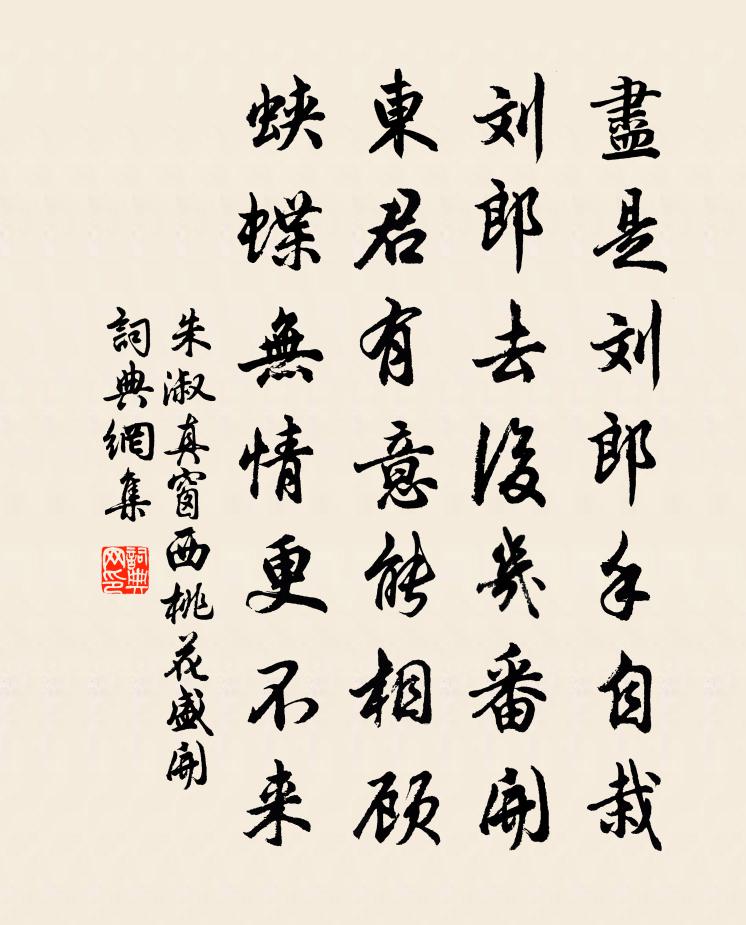 盡是刘郎手自栽
刘郎去後幾番開
東君有意能相顾
蛱蝶無情更不来
朱淑真窗西桃花盛開
詞典網集
詞典网印